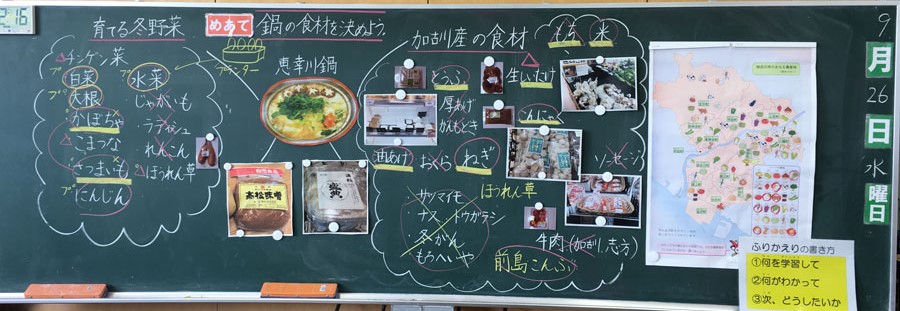 2.16
育てる冬野菜
めあて 鍋の食材を決めよう。
プランター
チンゲン菜
プ 白菜
水菜
プ 大根
じゃがいも
かぼちゃ
ラディッシュ
こまつな
れんこん
さつまいも
ほうれん草
プ にんじん
恵幸川鍋
高松味噌
加古川産の食材
もち 米
とうふ
生しいたけ
厚あげ
がんもどき
こんにゃく
油あげ
おくら
ねぎ
ソーセージ
サツマイモ
ほうれん草
ナス トウガラシ
冬がん
もうへいや
牛肉(加古川、志方)
前島こんぶ
9
月
26
日
水
曜
日
ふりかえりの書き方
①何を学習して
②何がわかって
③次、どうしたいか